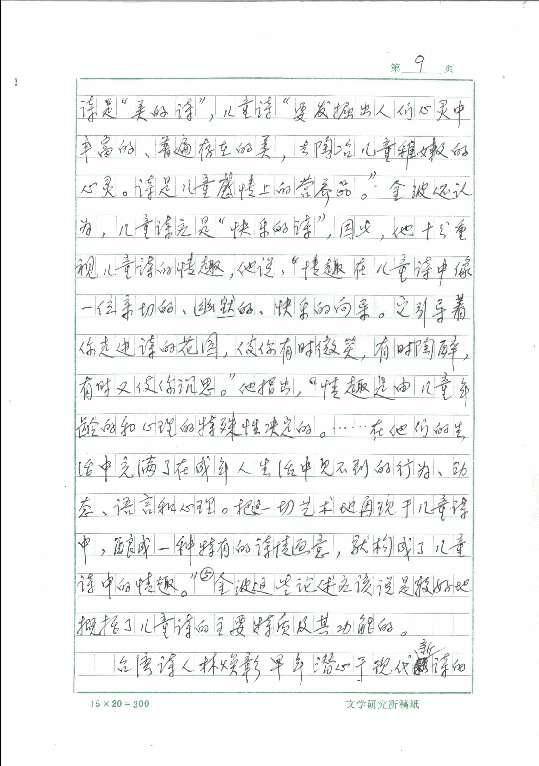 第 9 页
诗是“美的诗”，儿童诗“要发掘出人们心灵中
丰富的、普遍存在的美，去陶冶儿童稚嫩的
心灵。诗是儿童感情上的营养品。”金波还认
为，儿童诗应是“快乐的诗”，因此，他十分重
视儿童诗的情趣，他说，“情趣在儿童诗中像
一位亲切的、幽默的、快乐的向导。它引导着
你走进诗的花园，使你有时微笑，有时陶醉，
有时又使你沉思。”他指出，“情趣是由儿童年
龄的和心理的特殊性决定的。……在他们的生
活中充满了在成年人生活中见不到的行为、动
态、语言和心理。把这一切艺术地再现于儿童诗
中，酿成一种特有的诗情画意，就构成了儿童
诗中的情趣。”⑤金波这些论述应该说是较好地
概括了儿童诗的主要特质及其功能的。
台湾诗人林焕彰早年潜心于现代新诗的
15×20=300 文学研究所稿纸